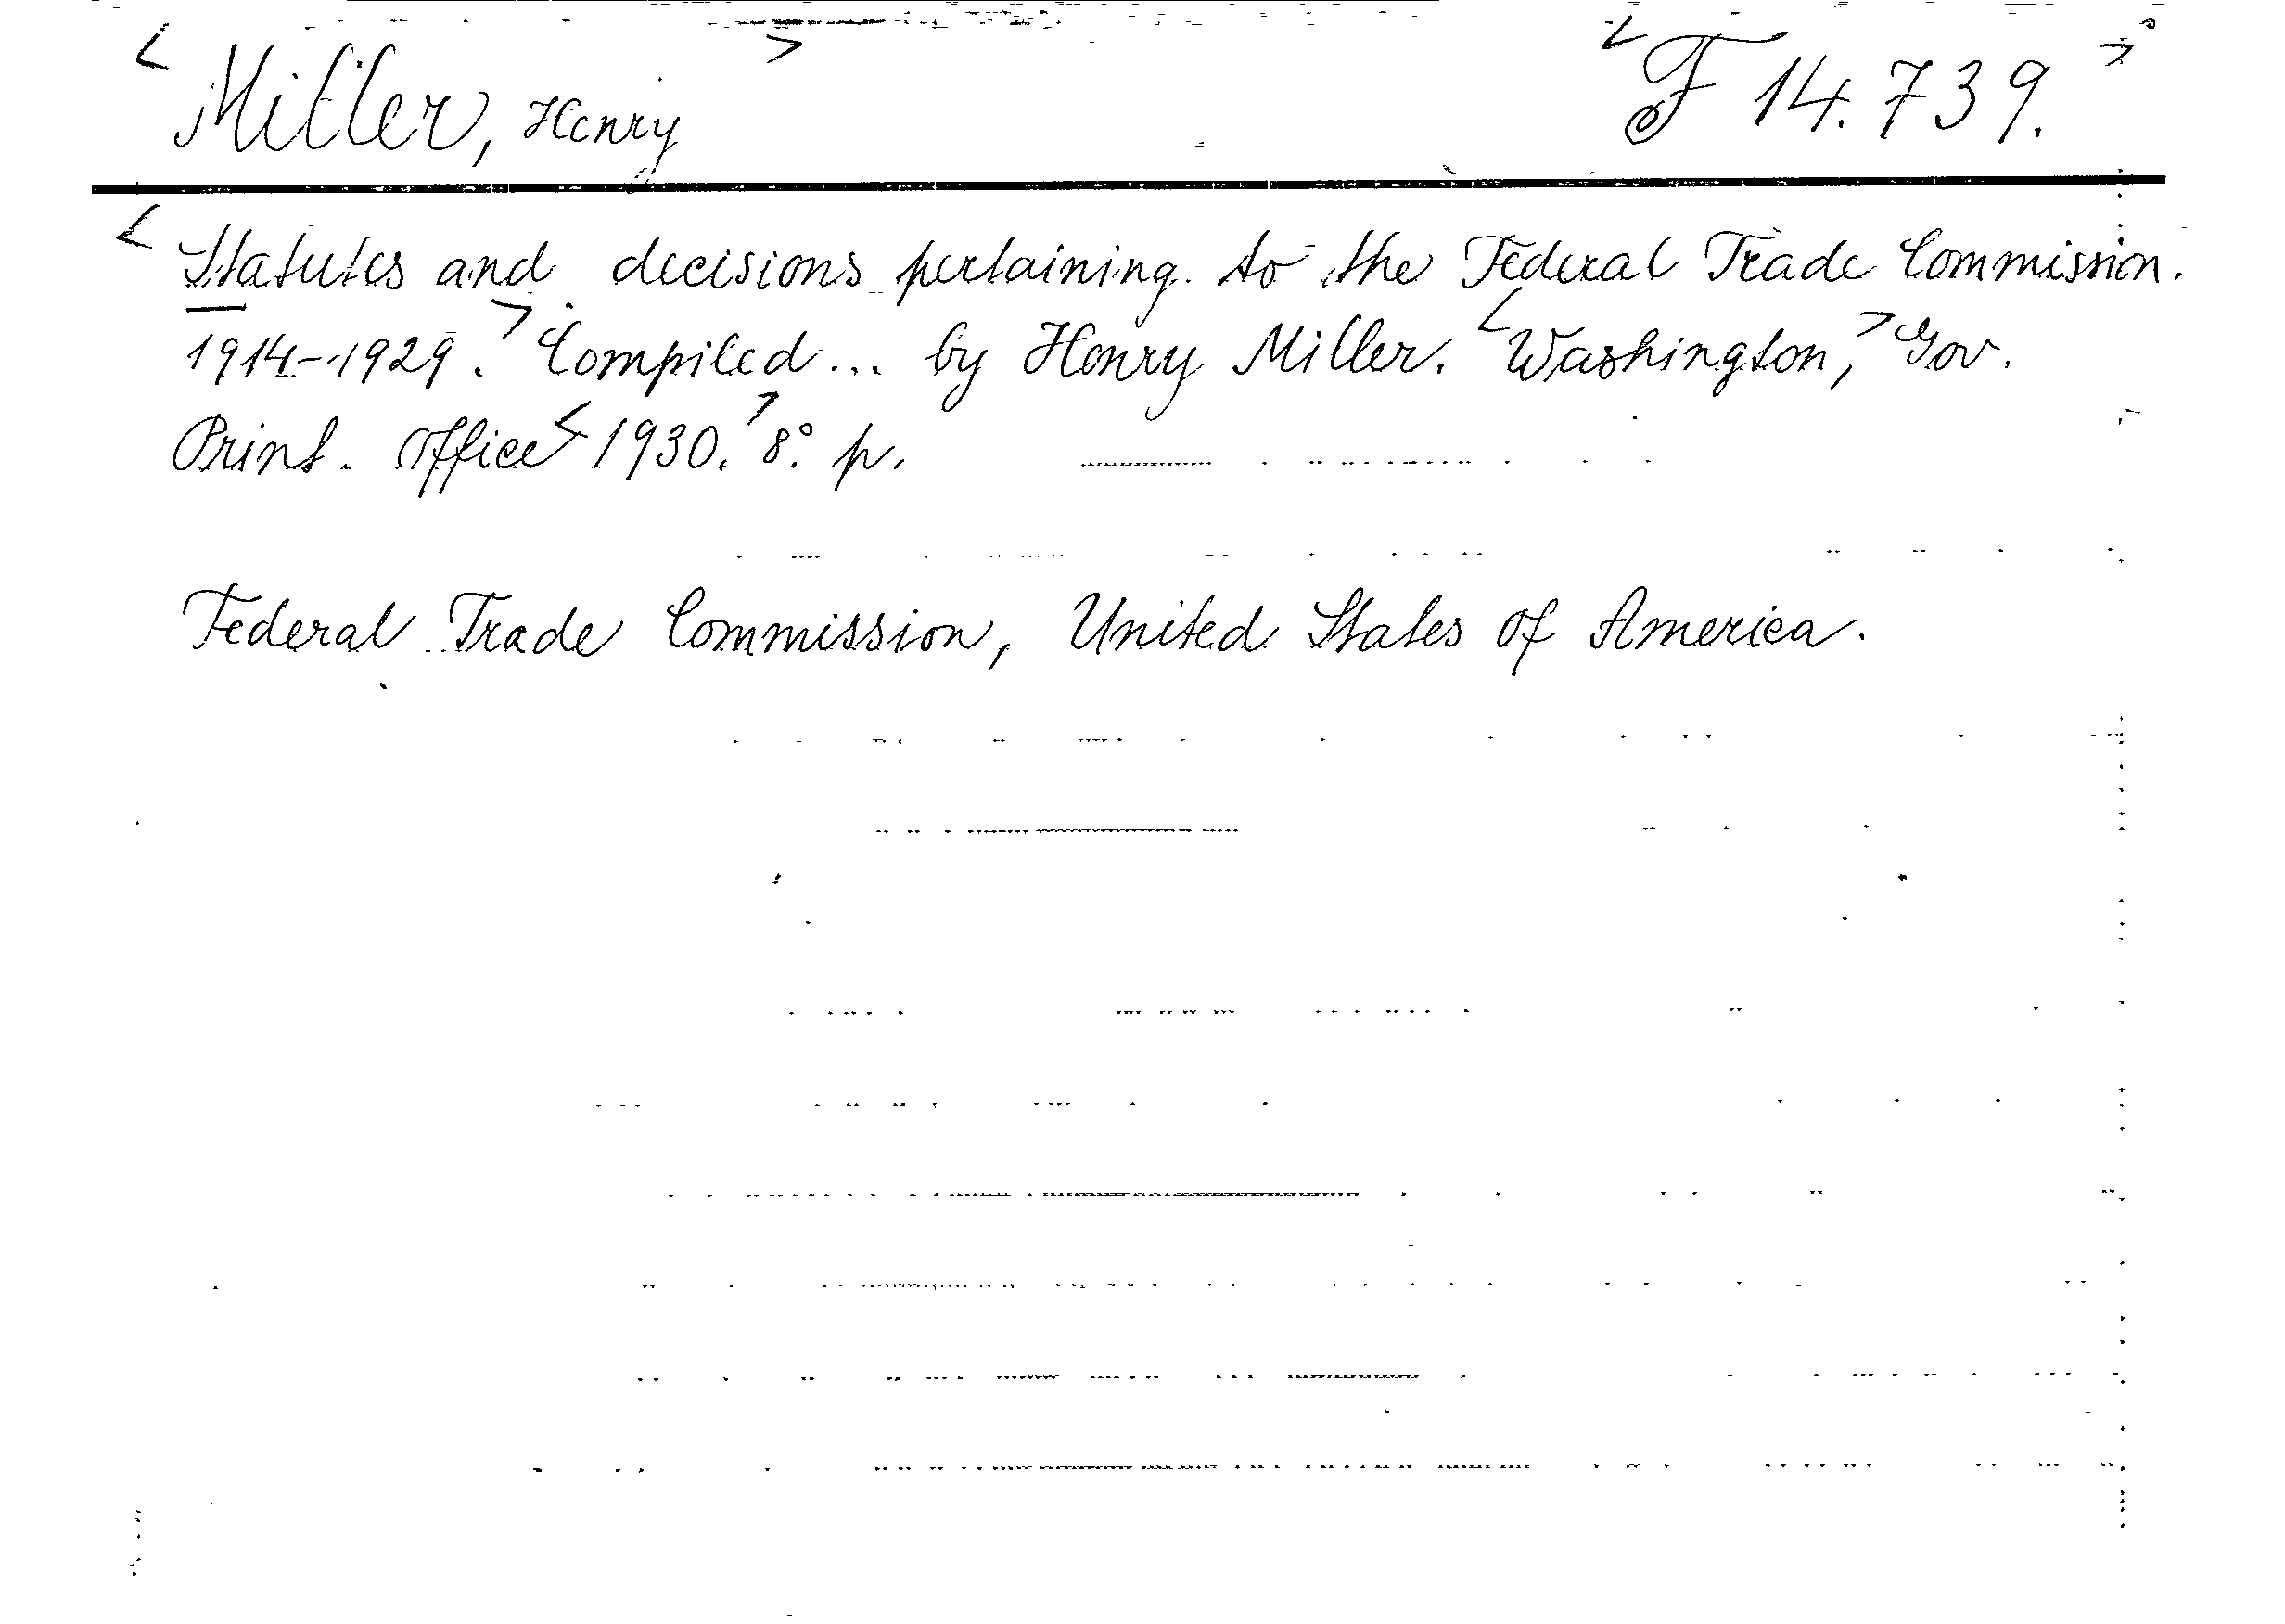 < Miller, Henry > < F 14.739. >
< Statutes and decisions pertaining to the Federal Trade Commission.
1914-1929. > Compiled... by Henry Miller. < Washington, > Gov.
Print. Office < 1930. > 8° p.
Federal Trade Commission, United States of America.